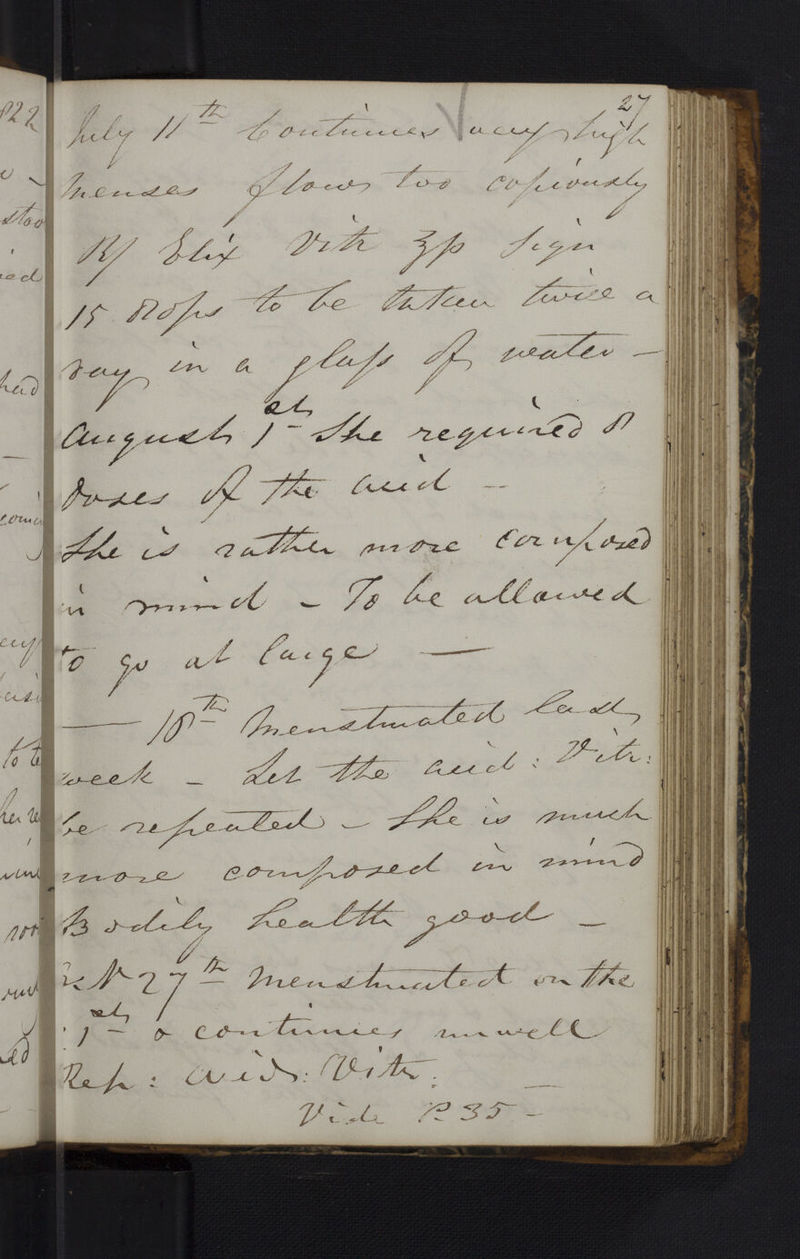 27
July 11th Continues very high
Menses flows too copiously
R/ Elix Vitr ʒp Sign
15 drops to be taken twice a
day in a glass of water —
August 1st She required 8
doses of the acid —
She is rather more composed
in mind – To be allowed
to go at large —
— 18th Menstruated last
week – Let the acid: Vitr:
be repeated – She is much
more composed in mind
Bodily health good –
27th Menstruated on the
1st & continues unwell
Rep: Acid: Vitr:
Vide P. 35 –